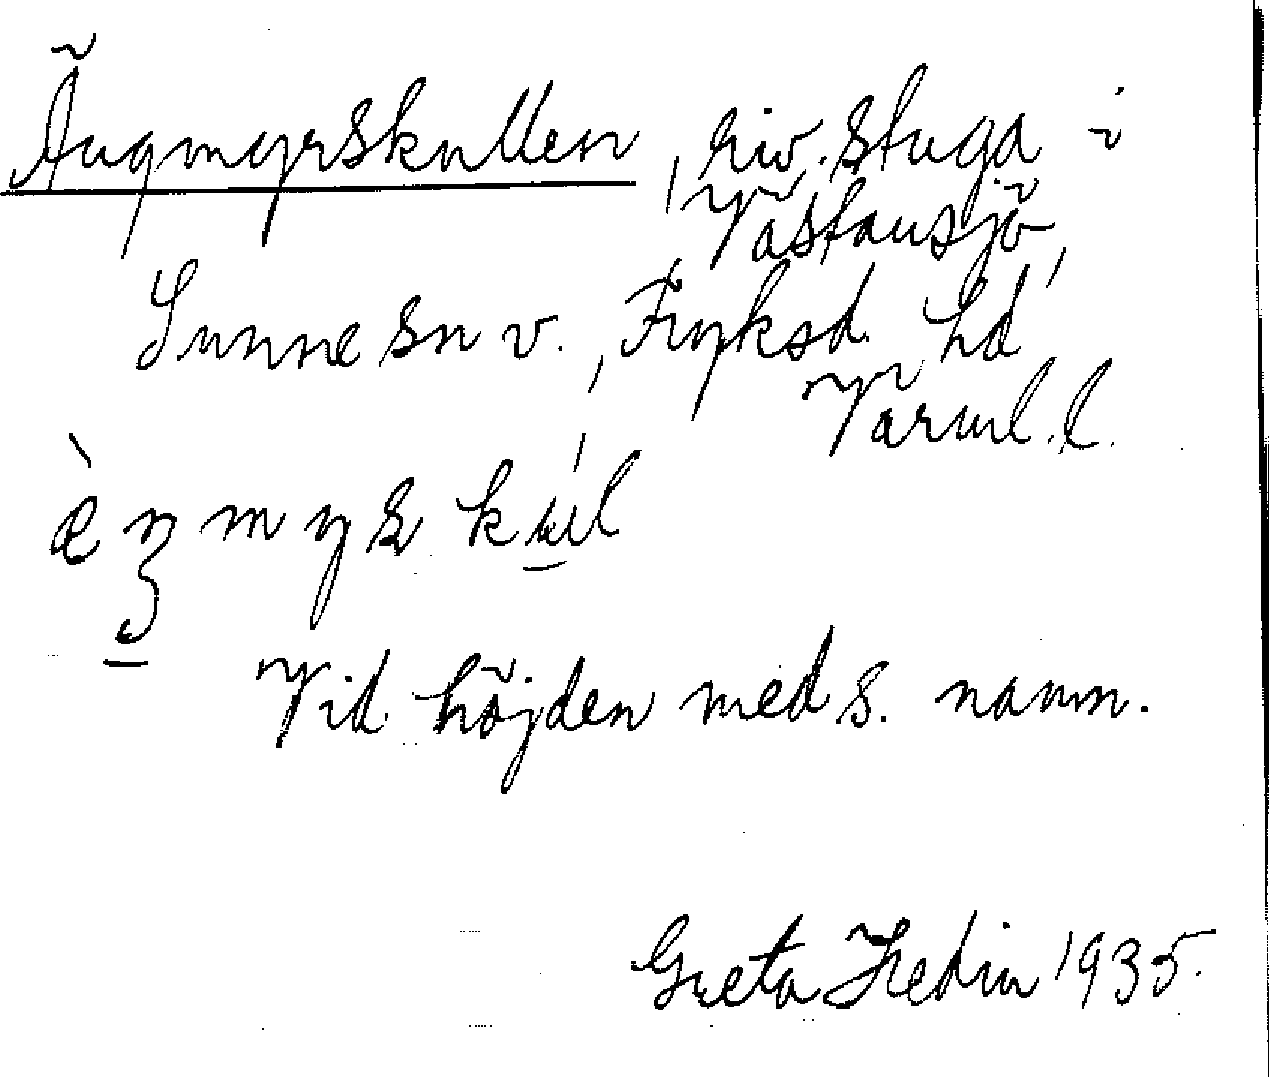 Ängmyrskullen, riv. stuga i
Västansjö,
Sunne sn v., Fryksd. hd
Värml. l.
Vid höjden med s. namn.
Greta Hedin 1935.